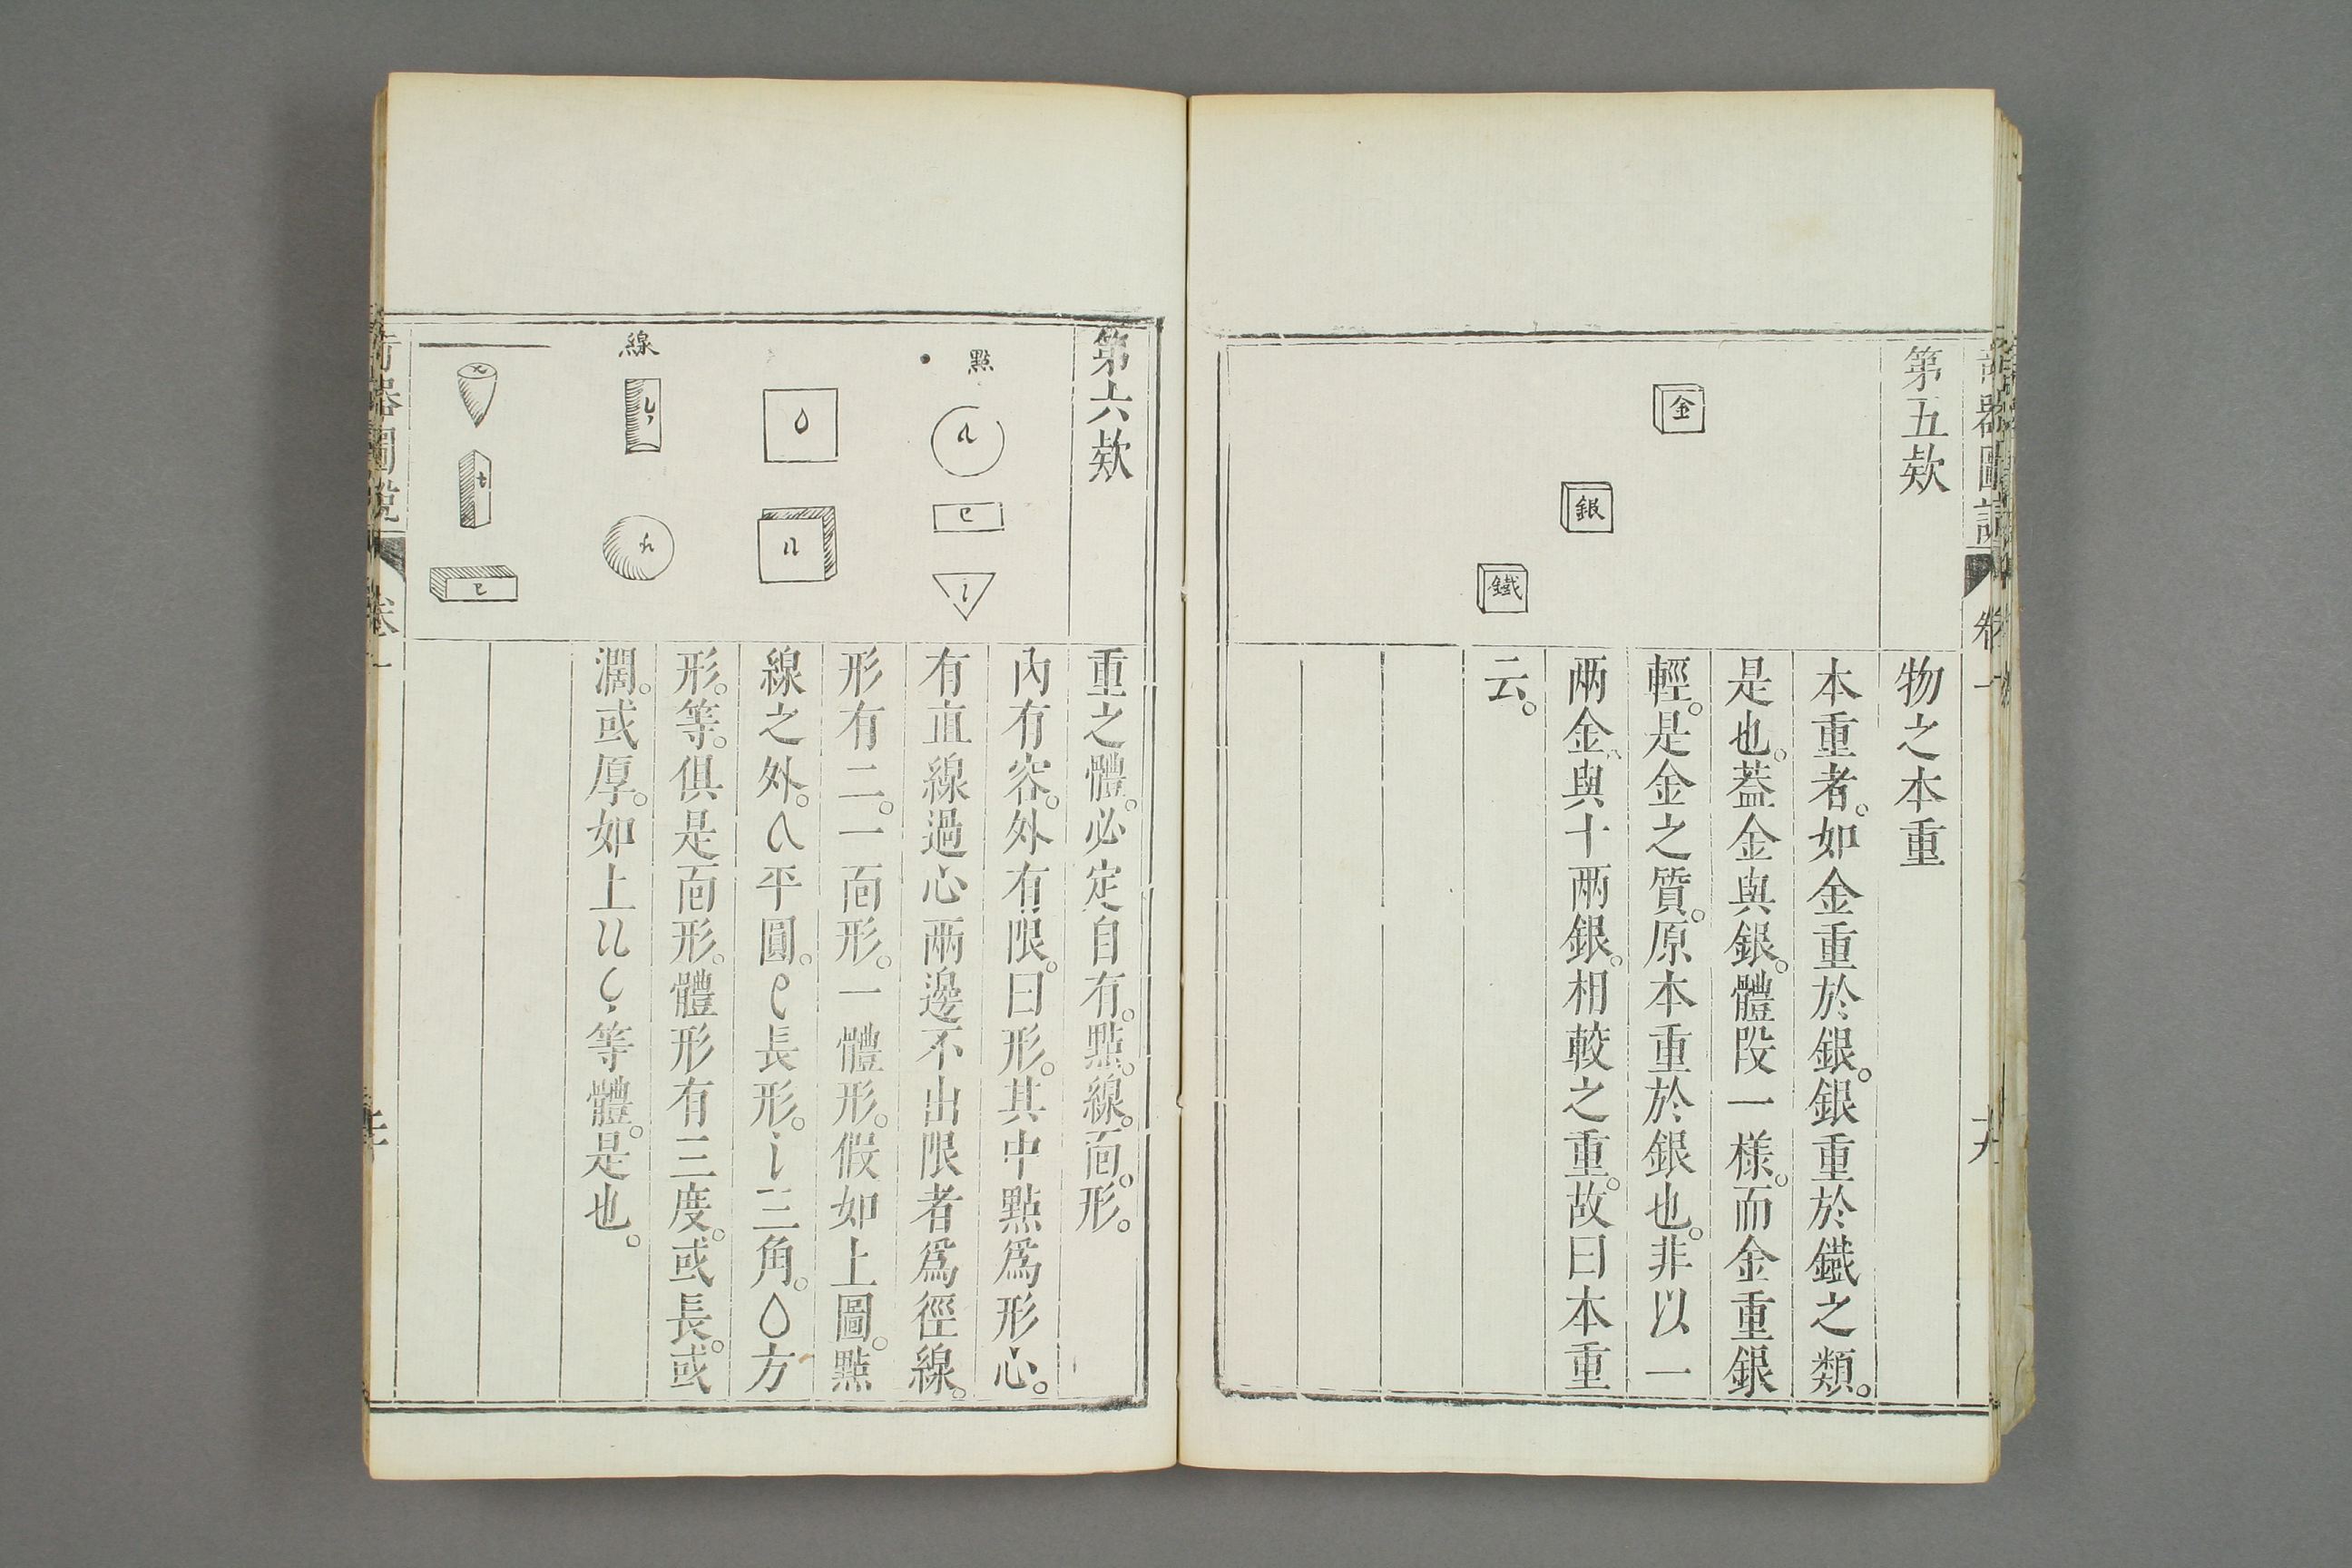 第五欵
金
銀
鐵
物之本重
本重者。如金重於銀。銀重於鐵之類。
是也。葢金與銀。體叚一樣。而金重銀
輕。是金之質。原本重於銀也。非以一
兩金、與十兩銀。相較之重。故曰本重
云。
第六欵
點
線
重之體。必定自有。點。線。面。形。
內有容。外有限。曰形。其中點爲形心。
有直線過心兩邊不出限者爲徑線。
形有二。一面形。一體形。假如上圖。點
線之外。a平圓。e長形。i三角。o方
形。等。俱是面形。體形有三度。或長。或
濶。或厚。如上u c等體。是也。
奇器圖說
卷一